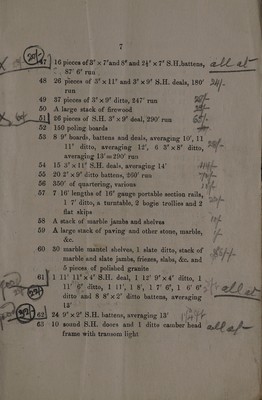 7
47 16 pieces of 3" × 7" and 8" and 2½" × 7" S.H. battens,
87' 6" run
all at
48 26 pieces of 3" × 11" and 3" × 9" S.H. deals, 180'
run
24/-
49 37 pieces of 3" × 9" ditto, 247' run
50 A large stack of firewood
51 26 pieces of S.H. 3" × 9" deal, 290' run
52 150 poling boards
53 8 9' boards, battens and deals, averaging 10', 11
11" ditto, averaging 12', 6 3" × 8" ditto,
averaging 13' = 290' run
54 15 3" × 11" S.H. deals, averaging 14'
55 20 2" × 9" ditto battens, 260' run
56 350' of quartering, various
57 7 16' lengths of 16" gauge portable section rails,
1 7' ditto, a turntable, 2 bogie trollies and 2
flat skips
58 A stack of marble jambs and shelves
59 A large stack of paving and other stone, marble,
&c.
60 30 marble mantel shelves, 1 slate ditto, stack of
marble and slate jambs, friezes, slabs, &c. and
5 pieces of polished granite
61 1 11' 11" × 4" S.H. deal, 1 12' 9" × 4" ditto, 1
11' 6" ditto, 1 11', 1 8', 1 7' 6", 1 6' 6"
ditto and 8 8' × 2" ditto battens, averaging
13'
all at
62 24 9" × 2" S.H. battens, averaging 13'
63 10 sound S.H. doors and 1 ditto camber head
frame with transom light
all at